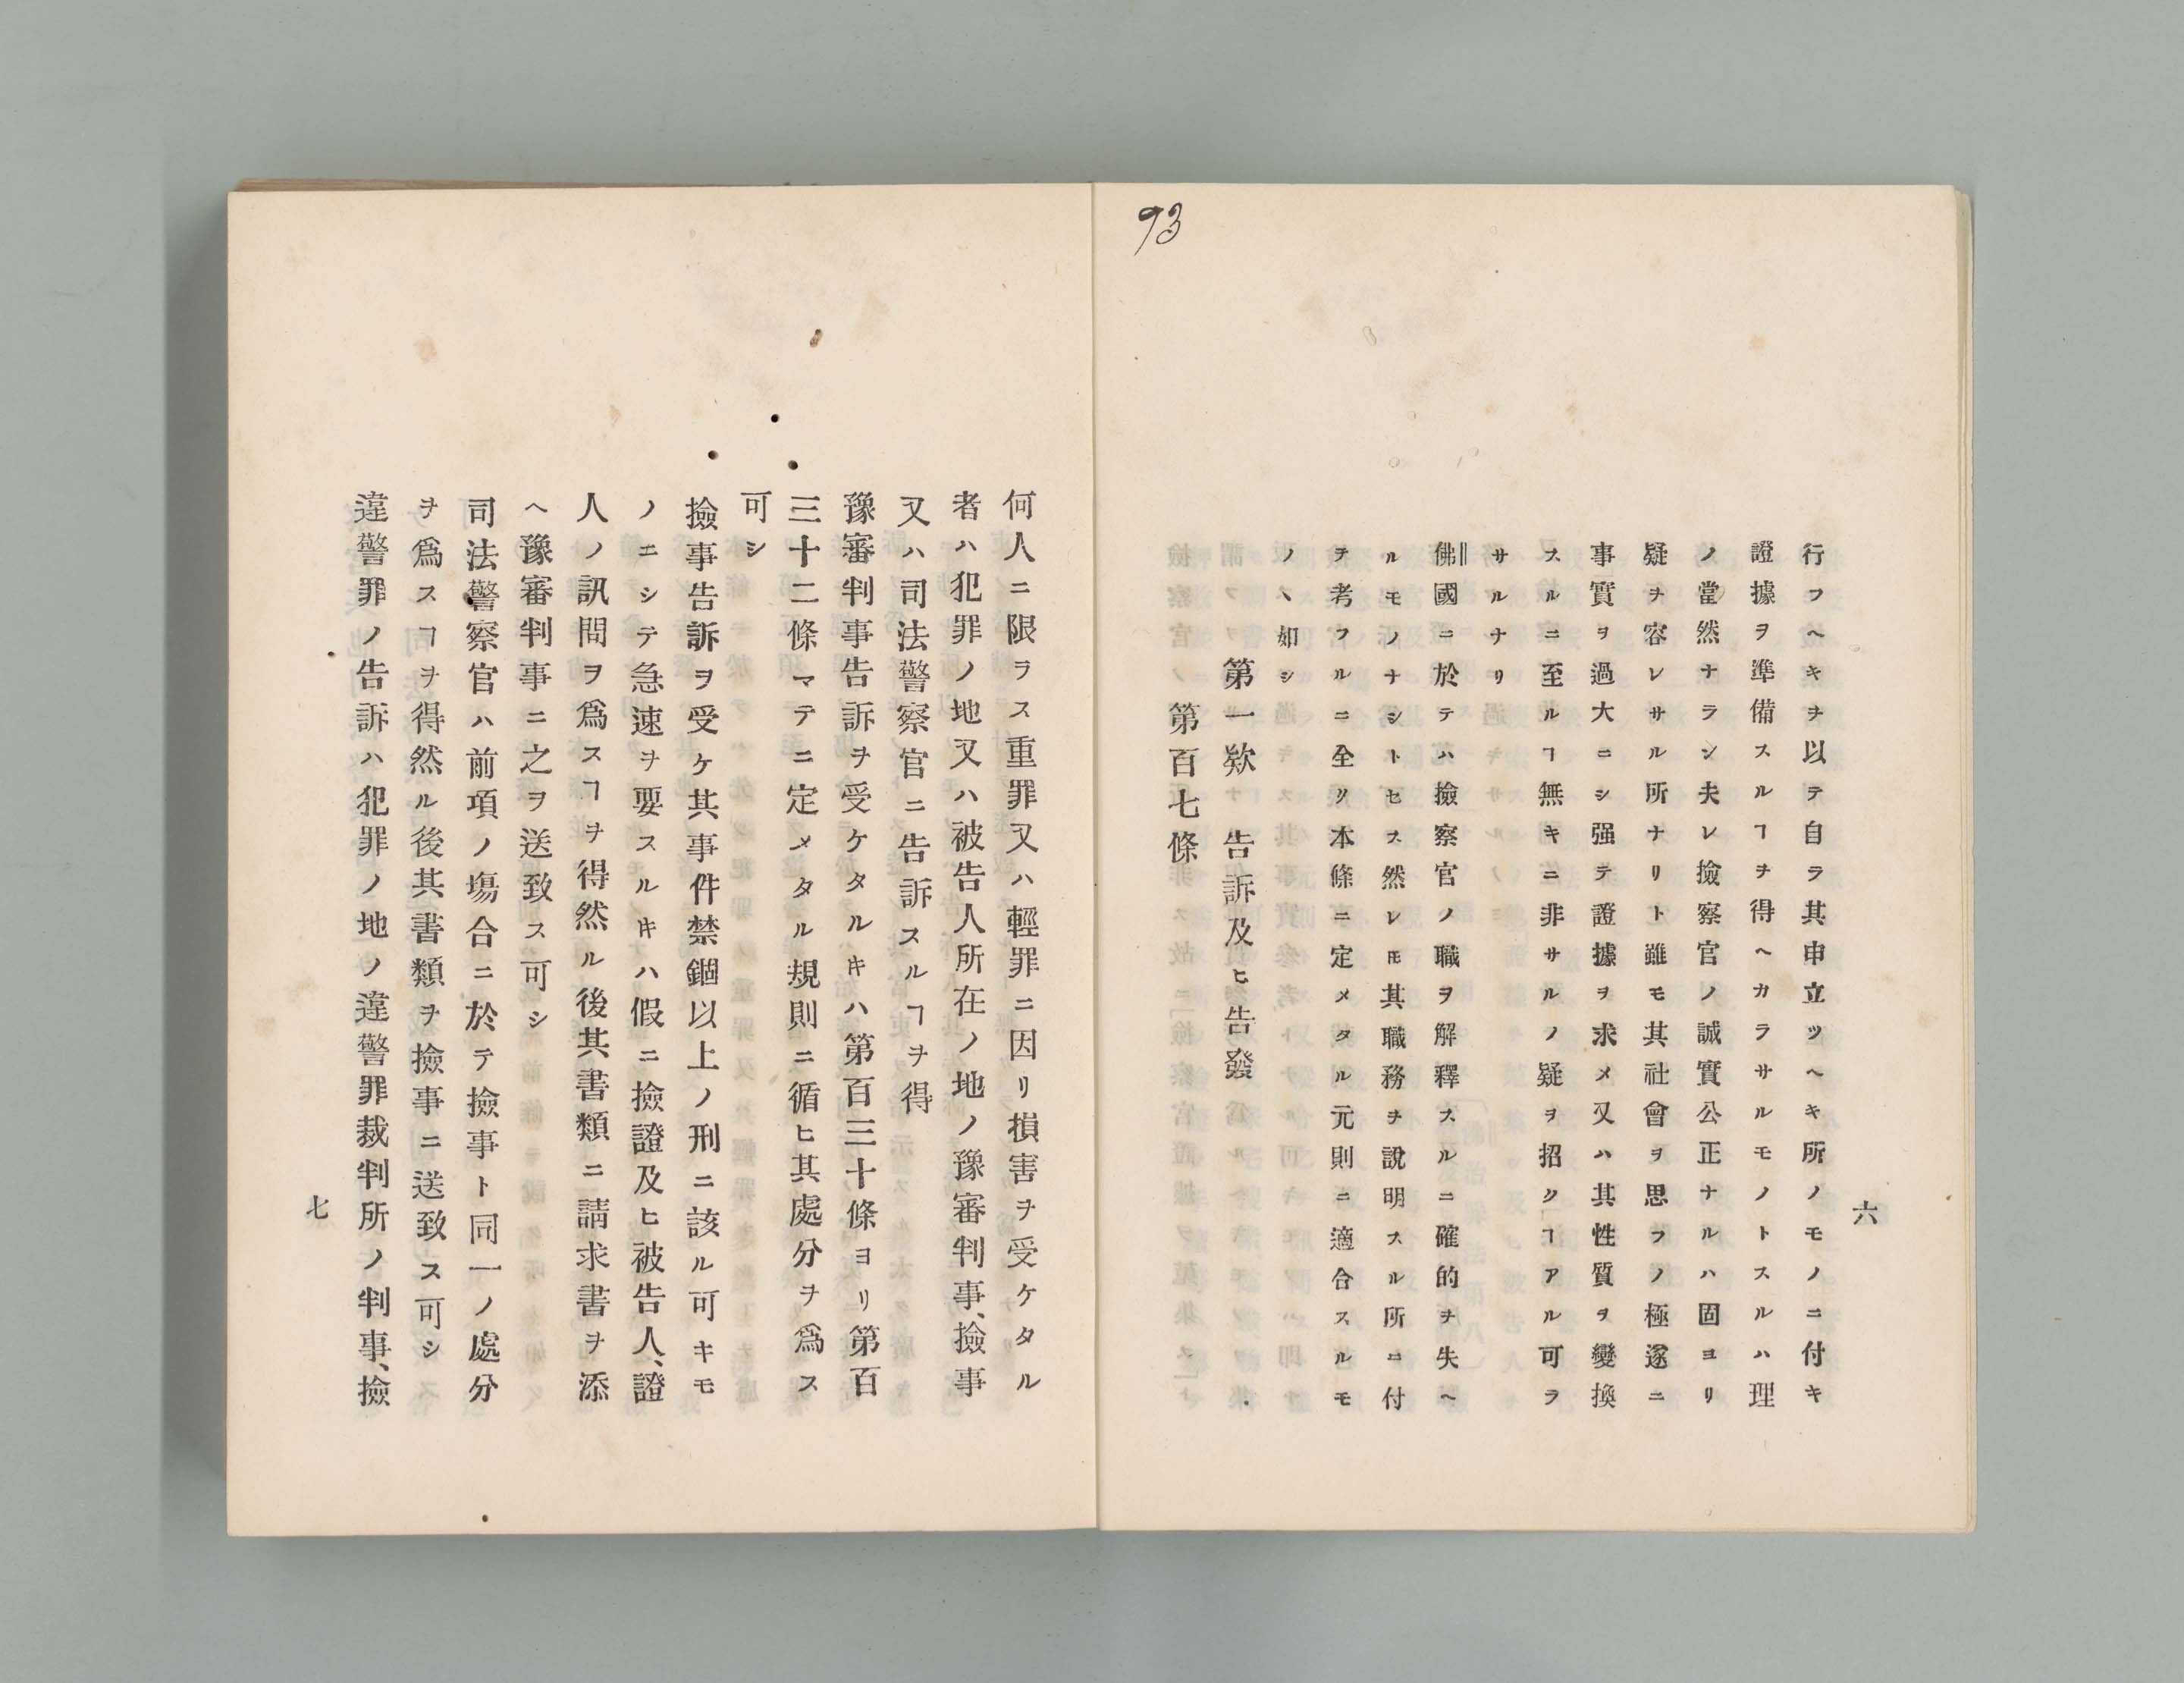 93
六
行フヘキヲ以テ自ラ其申立ツヘキ所ノモノニ付キ
證據ヲ準備スルヿヲ得ヘカラサルモノトスルハ理
ノ當然ナラン夫レ撿察官ノ誠實公正ナルハ固ヨリ
疑ヲ容レサル所ナリト雖モ其社會ヲ思フノ極遂ニ
事實ヲ過大ニシ强テ證據ヲ求メ又ハ其性質ヲ變換
スルニ至ルヿ無キニ非サルノ疑ヲ招クヿアル可ラ
サルナリ
佛國ニ於テハ撿察官ノ職ヲ解釋スルニ確的ヲ失ヘ
ルモノナシトセス然レ𪜈其職務ヲ說明スル所ニ付
ヲ考フルニ全ク本條ニ定メタル元則ニ適合スルモ
ノヽ如シ
第一欵 告訴及ヒ告發
第百七條
何人ニ限ラス重罪又ハ輕罪ニ因リ損害ヲ受ケタル
者ハ犯罪ノ地又ハ被告人所在ノ地ノ豫審判事、撿事
又ハ司法警察官ニ告訴スルヿヲ得
豫審判事告訴ヲ受ケタルキハ第百三十條ヨリ第百
三十二條マテニ定メタル規則ニ循ヒ其處分ヲ爲ス
可シ
撿事告訴ヲ受ケ其事件禁錮以上ノ刑ニ該ル可キモ
ノニシテ急速ヲ要スルキハ假ニ撿證及ヒ被告人、證
人ノ訊問ヲ爲スヿヲ得然ル後其書類ニ請求書ヲ添
ヘ豫審判事ニ之ヲ送致ス可シ
司法警察官ハ前項ノ塲合ニ於テ撿事ト同一ノ處分
ヲ爲スヿヲ得然ル後其書類ヲ撿事ニ送致ス可シ
違警罪ノ告訴ハ犯罪ノ地ノ違警罪裁判所ノ判事、撿
七